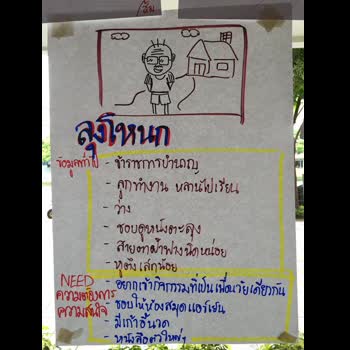 ลุงโหนก
ข้อมูลทั่วไป
- ข้าราชการบำนาญ
- ลูกทำงาน หลานไปเรียน
- ว่าง
- ชอบดูหนังตะลุง
- สายตาฝ้าฟางนิดหน่อย
- หูตึงเล็กน้อย
NEED
ความต้องการ
ความสนใจ
- อยากเข้ากิจกรรมที่เป็นเพื่อนวัยเดียวกัน
- ชอบให้ห้องสมุดแอร์เย็น
- มีเก้าอี้นวด
- หนังสือตัวใหญ่ๆ